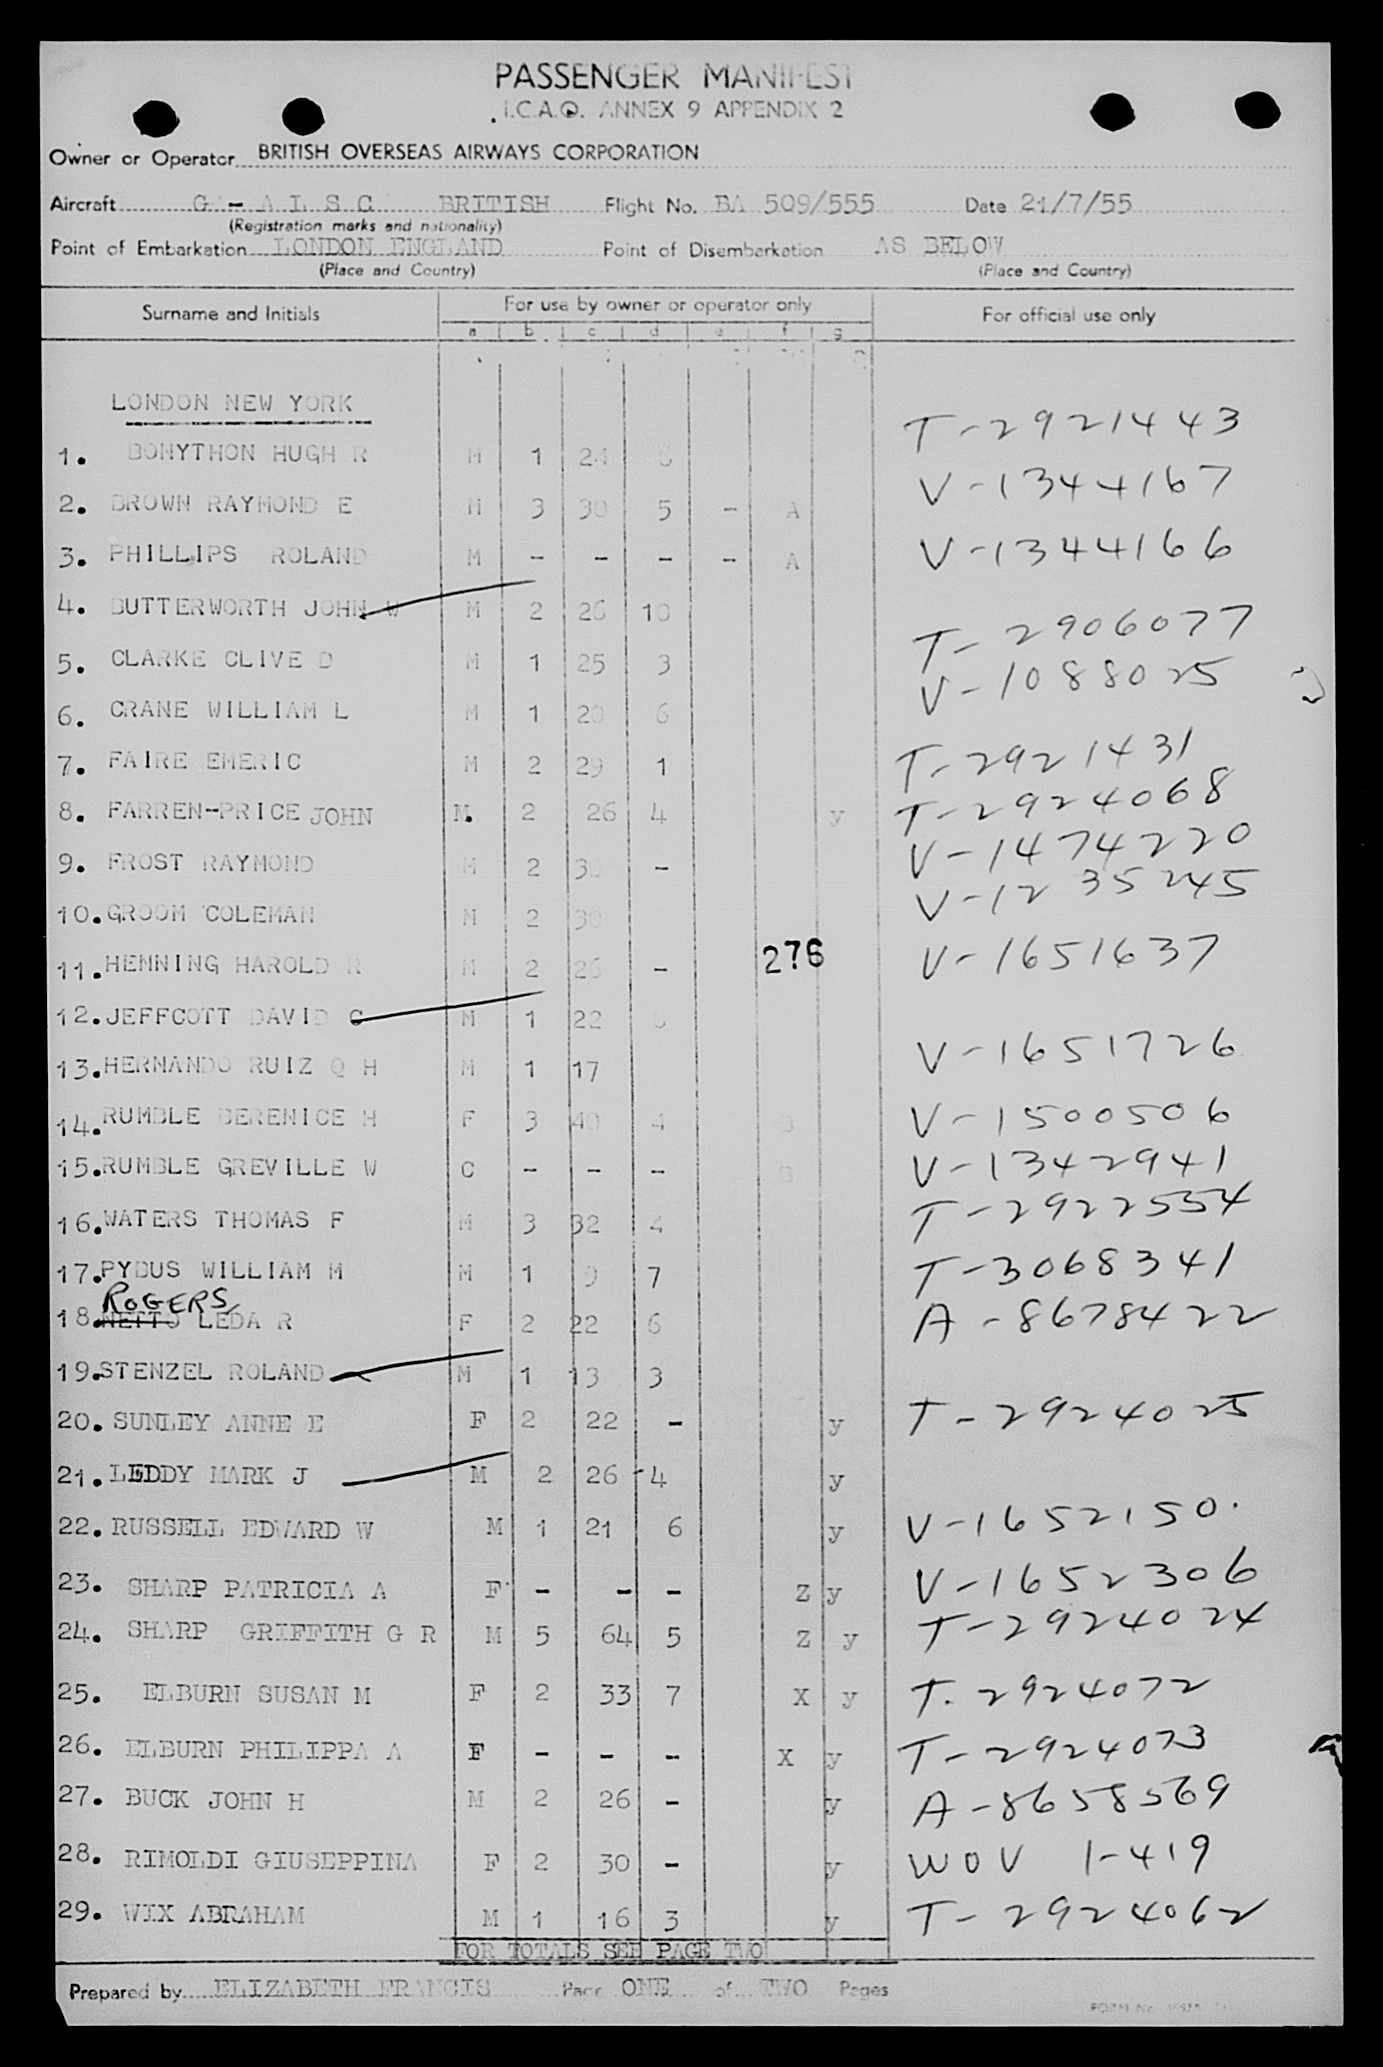 PASSENGER MANIFEST
I.C.A.O. ANNEX 9 APPENDIX 2
Owner or Operator BRITISH OVERSEAS AIRWAYS CORPORATION
Aircraft G - A L S C BRITISH Flight No. BA 509/555 Date 21/7/55
(Registration marks and nationality)
Point of Embarkation LONDON ENGLAND Point of Disembarkation AS BELOW
(Place and Country) (Place and Country)
Surname and Initials For use by owner or operator only For official use only
a b c d e f g
LONDON NEW YORK
1. BONYTHON HUGH R M 1 24 6 T-2921443
2. BROWN RAYMOND E M 3 30 5 - A V-1344167
3. PHILLIPS ROLAND M - - - - A V-1344166
4. BUTTERWORTH JOHN W M 2 26 10
5. CLARKE CLIVE D M 1 25 3 T-2906077
6. CRANE WILLIAM L M 1 20 6 V-1088025
7. FAIRE EMERIC M 2 29 1 T-2921431
8. FARREN-PRICE JOHN M. 2 26 4 y T-2924068
9. FROST RAYMOND M 2 30 - V-1474220
10. GROOM COLEMAN M 2 30 V-1235245
11. HENNING HAROLD R M 2 26 - 276 V-1651637
12. JEFFCOTT DAVID C M 1 22
13. HERNANDO RUIZ Q H M 1 17 V-1651726
14. RUMBLE BERENICE H F 3 40 4 B V-1500506
15. RUMBLE GREVILLE W C - - - B V-1342941
16. WATERS THOMAS F M 3 32 4 T-2922554
17. PYBUS WILLIAM M M 1 9 7 T-3068341
ROGERS
18. NETTO LEDA R F 2 22 6 A-8678422
19. STENZEL ROLAND M 1 13 3
20. SUNLEY ANNE E F 2 22 - y T-2924025
21. LEDDY MARK J M 2 26 -4 y
22. RUSSELL EDWARD W M 1 21 6 y V-1652150.
23. SHARP PATRICIA A F - - - Z y V-1652306
24. SHARP GRIFFITH G R M 5 64 5 Z y T-2924024
25. ELBURN SUSAN M F 2 33 7 X y T. 2924072
26. ELBURN PHILIPPA A F - - - X y T-2924073
27. BUCK JOHN H M 2 26 - y A-8658569
28. RIMOLDI GIUSEPPINA F 2 30 - y WOV 1-419
29. WIX ABRAHAM M 1 16 3 y T-2924062
FOR TOTALS SEE PAGE TWO
Prepared by ELIZABETH FRANCIS Page ONE of TWO Pages